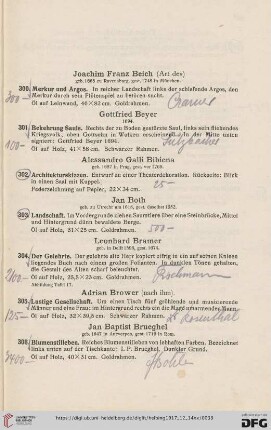 Joachim Franz Beich (Art des)
geb. 1665 zu Ravensburg, gest. 1748 in München.
300 Merkur und Argos. In reicher Landschaft links der schlafende Argos, den
Merkur durch sein Flötenspiel zu betören sucht.
Öl auf Leinwand, 46×82 cm. Goldrahmen.
300-
Cramer
Gottfried Beyer
1694.
301 Bekehrung Sauls. Rechts der zu Boden gestürzte Saul, links sein fliehendes
Kriegsvolk, oben Gottvater in Wolken erscheinend. In der Mitte unten
signiert: Gottfried Beyer 1694.
100-
Öl auf Holz, 41×58 cm. Schwarzer Rahmen.
Alessandro Galli Bibiena
geb. 1687 in Prag, gest. vor 1769.
302 Architekturskizzen. Entwurf zu einer Theaterdekoration. Rückseite: Blick
in einen Saal mit Kuppel.
25-
Federzeichnung auf Papier, 22×34 cm.
Jan Both
geb. zu Utrecht um 1618, gest. daselbst 1652.
303 Landschaft. Im Vordergrunde ziehen Saumtiere über eine Steinbrücke, Mittel
und Hintergrund dünn bewaldete Berge.
Öl auf Holz, 31×25 cm. Goldrahmen.
500-
Leonhard Bramer
geb. in Delft 1595, gest. 1674.
304 Der Gelehrte. Der gelehrte alte Herr kopiert eifrig in ein auf seinen Knieen
liegendes Buch nach einem großen Folianten. In dunklen Tönen gehalten,
die Gestalt des Alten scharf beleuchtet.
Öl auf Holz, 28,5×23 cm. Goldrahmen.
Abbildung Tafel 17.
Adrian Brower (nach ihm).
305 Lustige Gesellschaft. Um einen Tisch fünf gröhlende und musizierende
Männer und eine Frau; im Hintergrund rechts ein die Magd umarmender Mann.
Öl auf Holz, 32×39,5 cm. Schwarzer Rahmen.
125-
Rosenthal
Jan Baptist Brueghel
geb. 1647 in Antwerpen, gest. 1719 in Rom.
306 Blumenstilleben. Reiches Blumenstilleben von lebhaften Farben. Bezeichnet
links unten auf der Tischkante: I. P. Brueghel. Dunkler Grund.
Öl auf Holz, 40×31 cm. Goldrahmen.
http://digi.ub.uni-heidelberg.de/diglit/helbing1917_12_14xx/0033